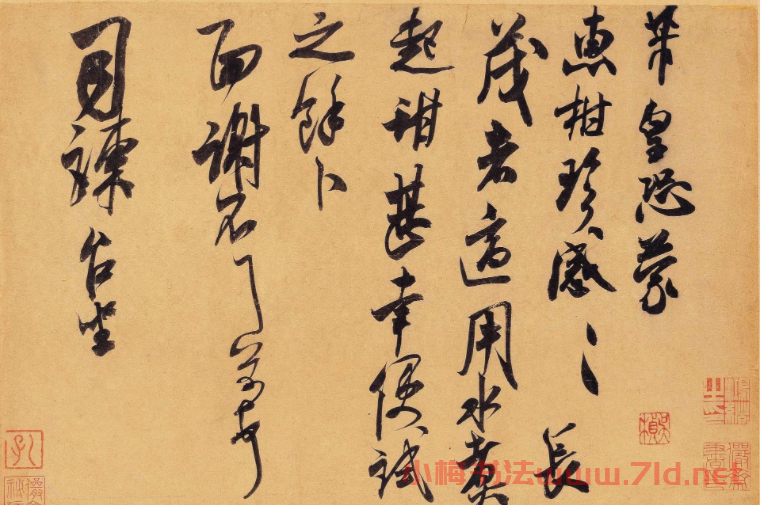 芾皇恐蒙
惠柑珍感〻長
茂者適用水煮
起甜甚幸便試
之餘卜
面謝不一一芾頓首
司諫台坐
小梅书法www.7ld.net